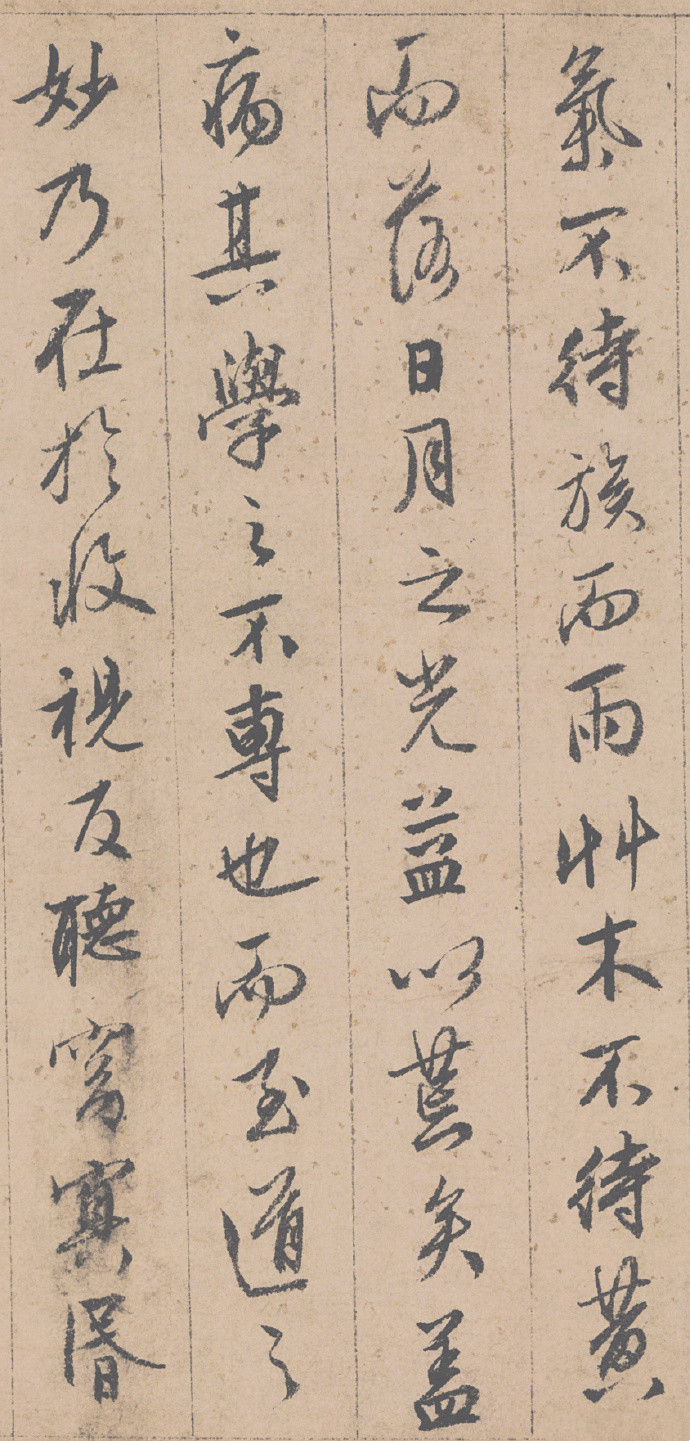 氣不待族而雨艸木不待黃
而落日月之光益以荒矣蓋
病其學之不專也而至道之
妙乃在於收視反聽窅冥昏